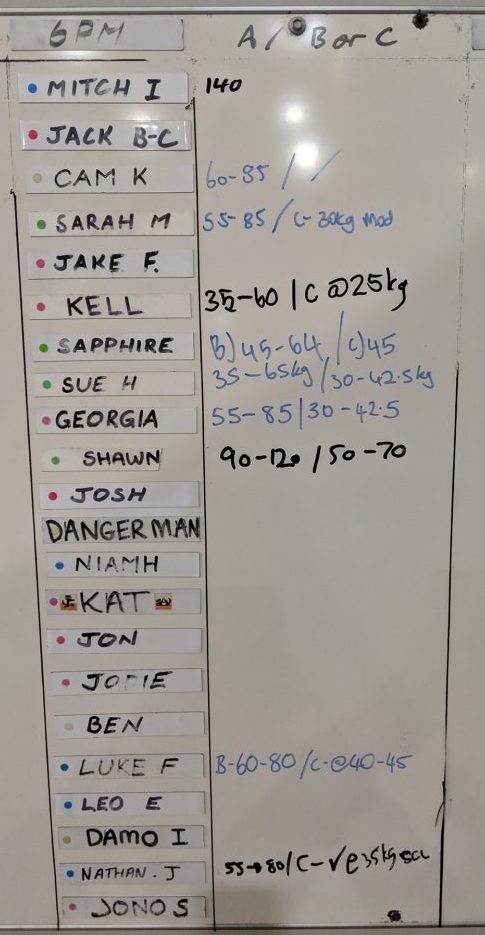 6PM A / B or C
• MITCH I 140
• JACK B-C
• CAM K 60-85 / /
• SARAH M 55-85 / C- 30kg mod
• JAKE F.
• KELL 35-60 | C @25kg
• SAPPHIRE B) 45-64 / C) 45
• SUE H 35-65kg / 30-42.5kg
• GEORGIA 55-85 | 30-42.5
• SHAWN 90-120 / 50-70
• JOSH
DANGERMAN
• NIAMH
• KAT
• JON
• JODIE
• BEN
• LUKE F B-60-80 / C-@40-45
• LEO E
• DAMO I
• NATHAN. J 55→80 / C-✓@35kg
• JONO S